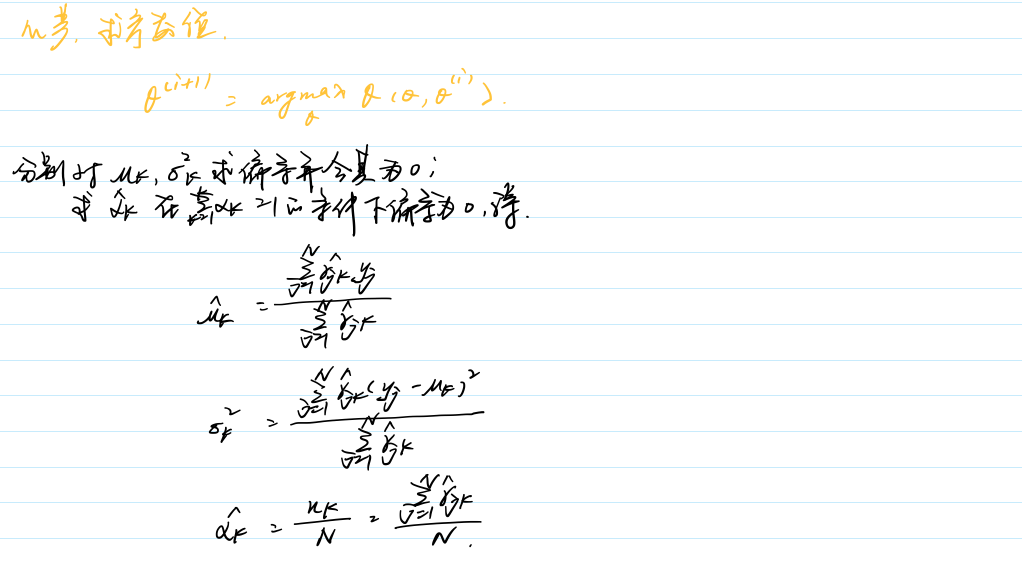 M步. 求参数值.
θ^(i+1) = argmax_θ Q(θ, θ^(i)).
分别对 μ_k, σ_k^2 求偏导并令其为0;
求 α̂_k 在 Σ_{k=1}^K α_k = 1 的条件下偏导为0, 得.
μ̂_k = Σ_{j=1}^N γ̂_jk y_j / Σ_{j=1}^N γ̂_jk
σ_k^2 = Σ_{j=1}^N γ̂_jk (y_j - μ_k)^2 / Σ_{j=1}^N γ̂_jk
α̂_k = n_k / N = Σ_{j=1}^N γ̂_jk / N.